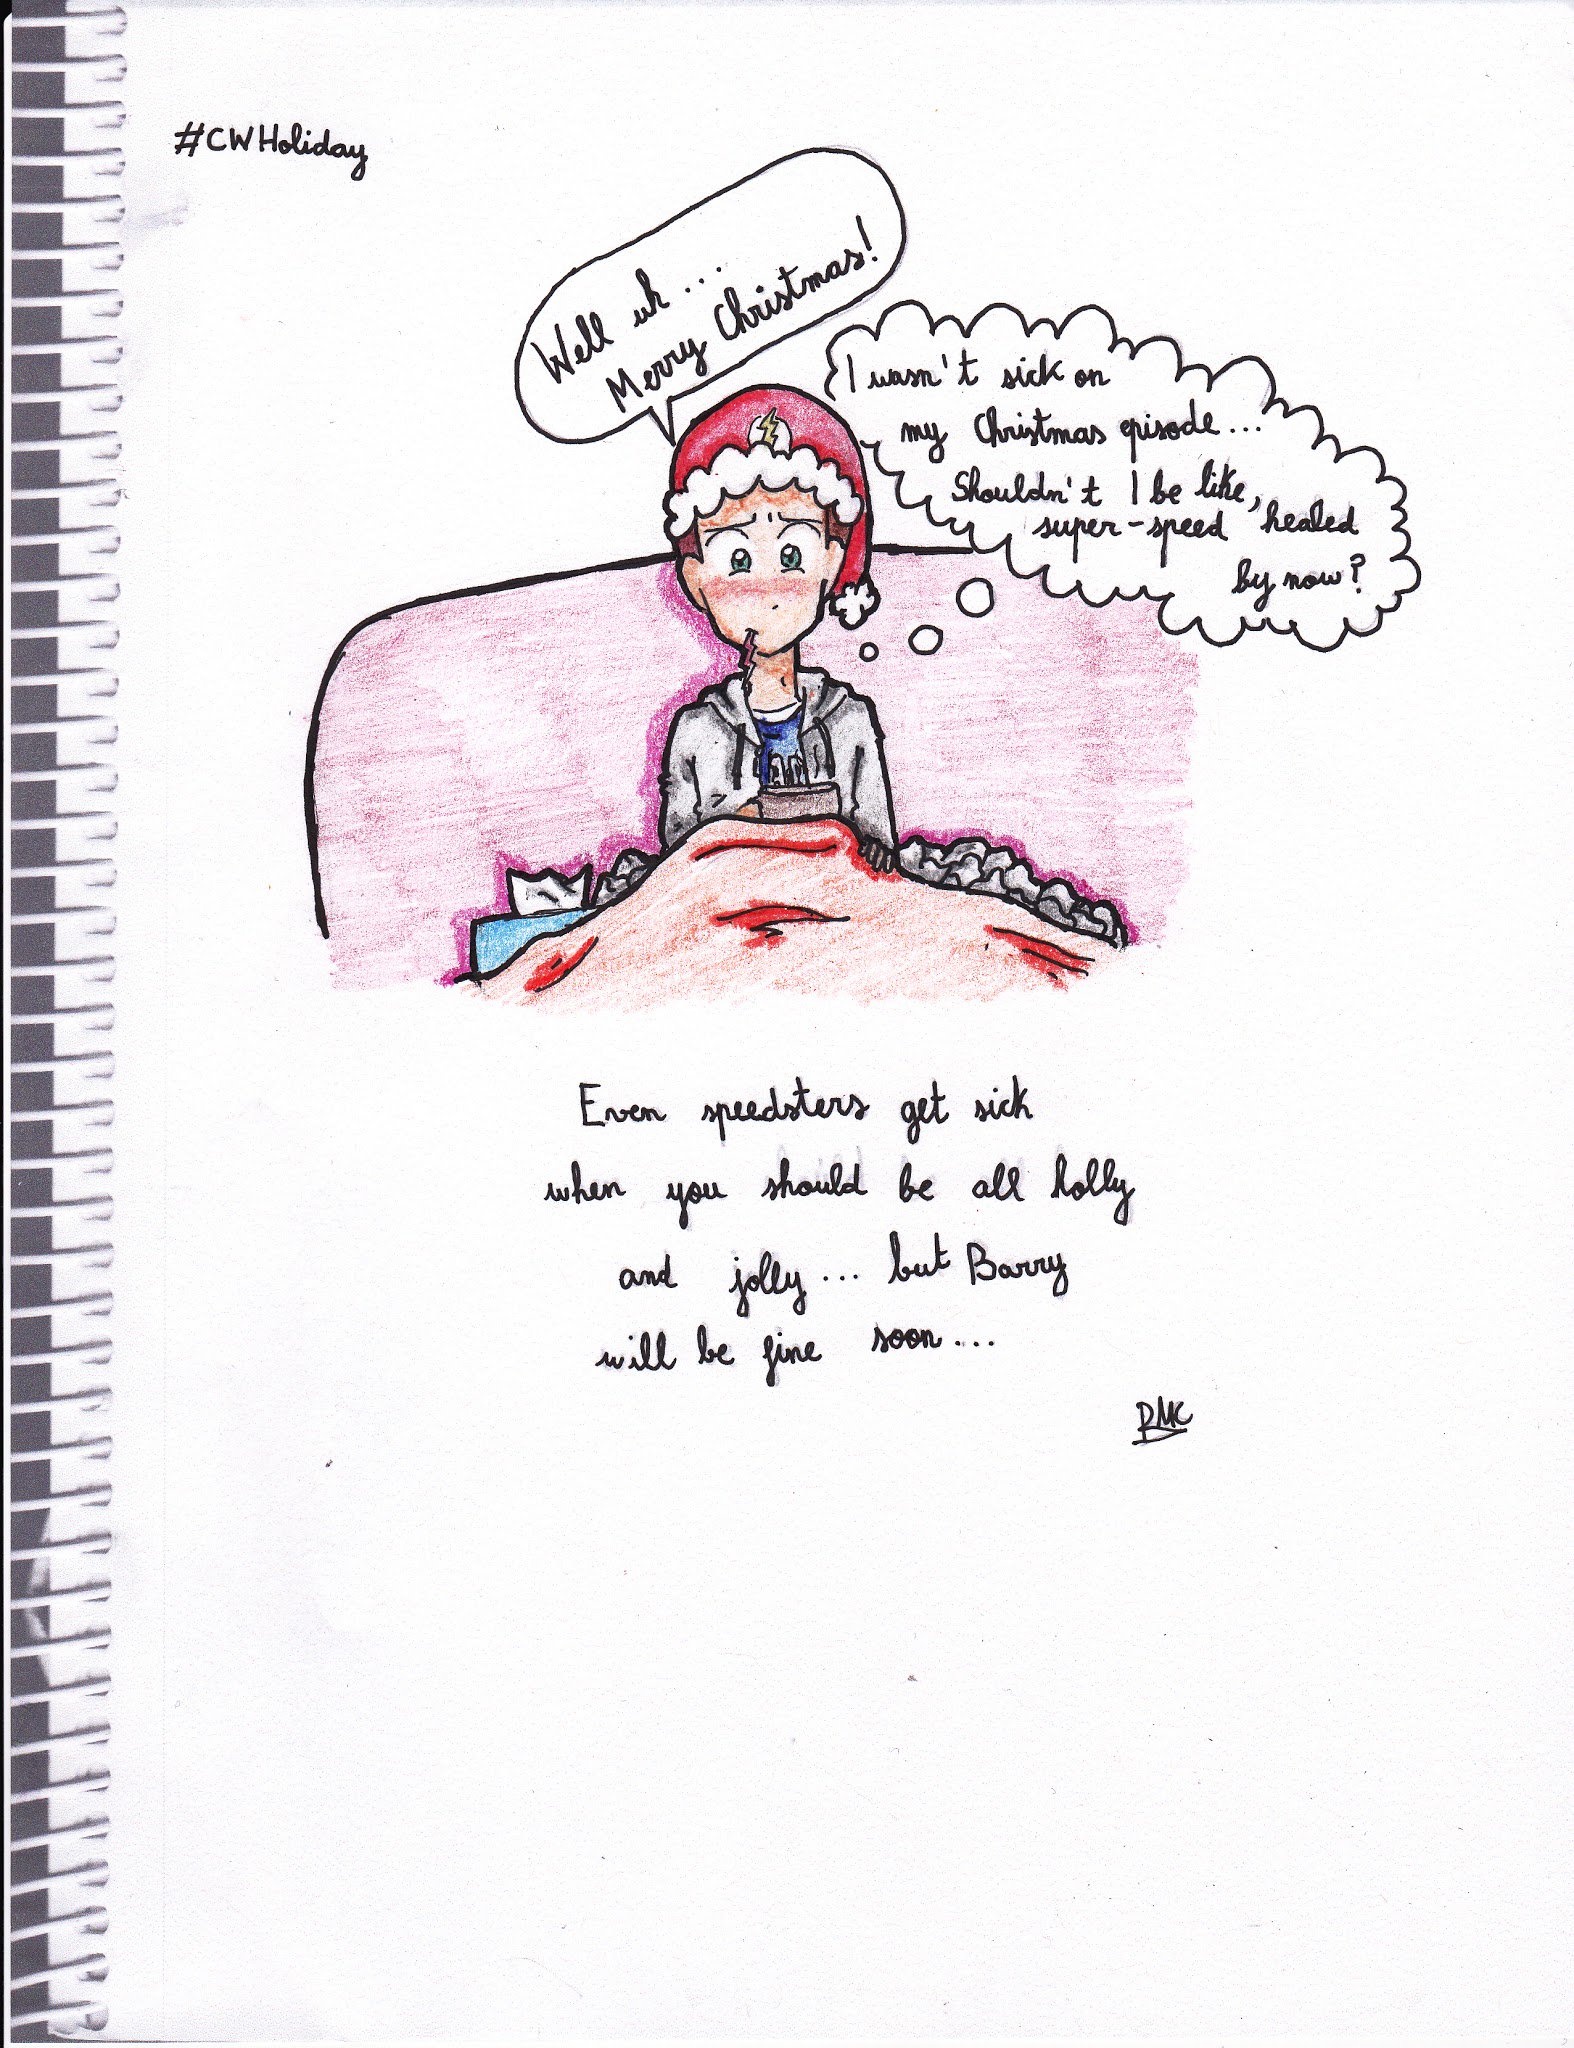 #CWHoliday
Well uh...
Merry Christmas!
I wasn't sick on
my Christmas episode...
Shouldn't I be like,
super-speed healed
by now?
Even speedsters get sick
when you should be all holly
and jolly... but Barry
will be fine soon...
RMC